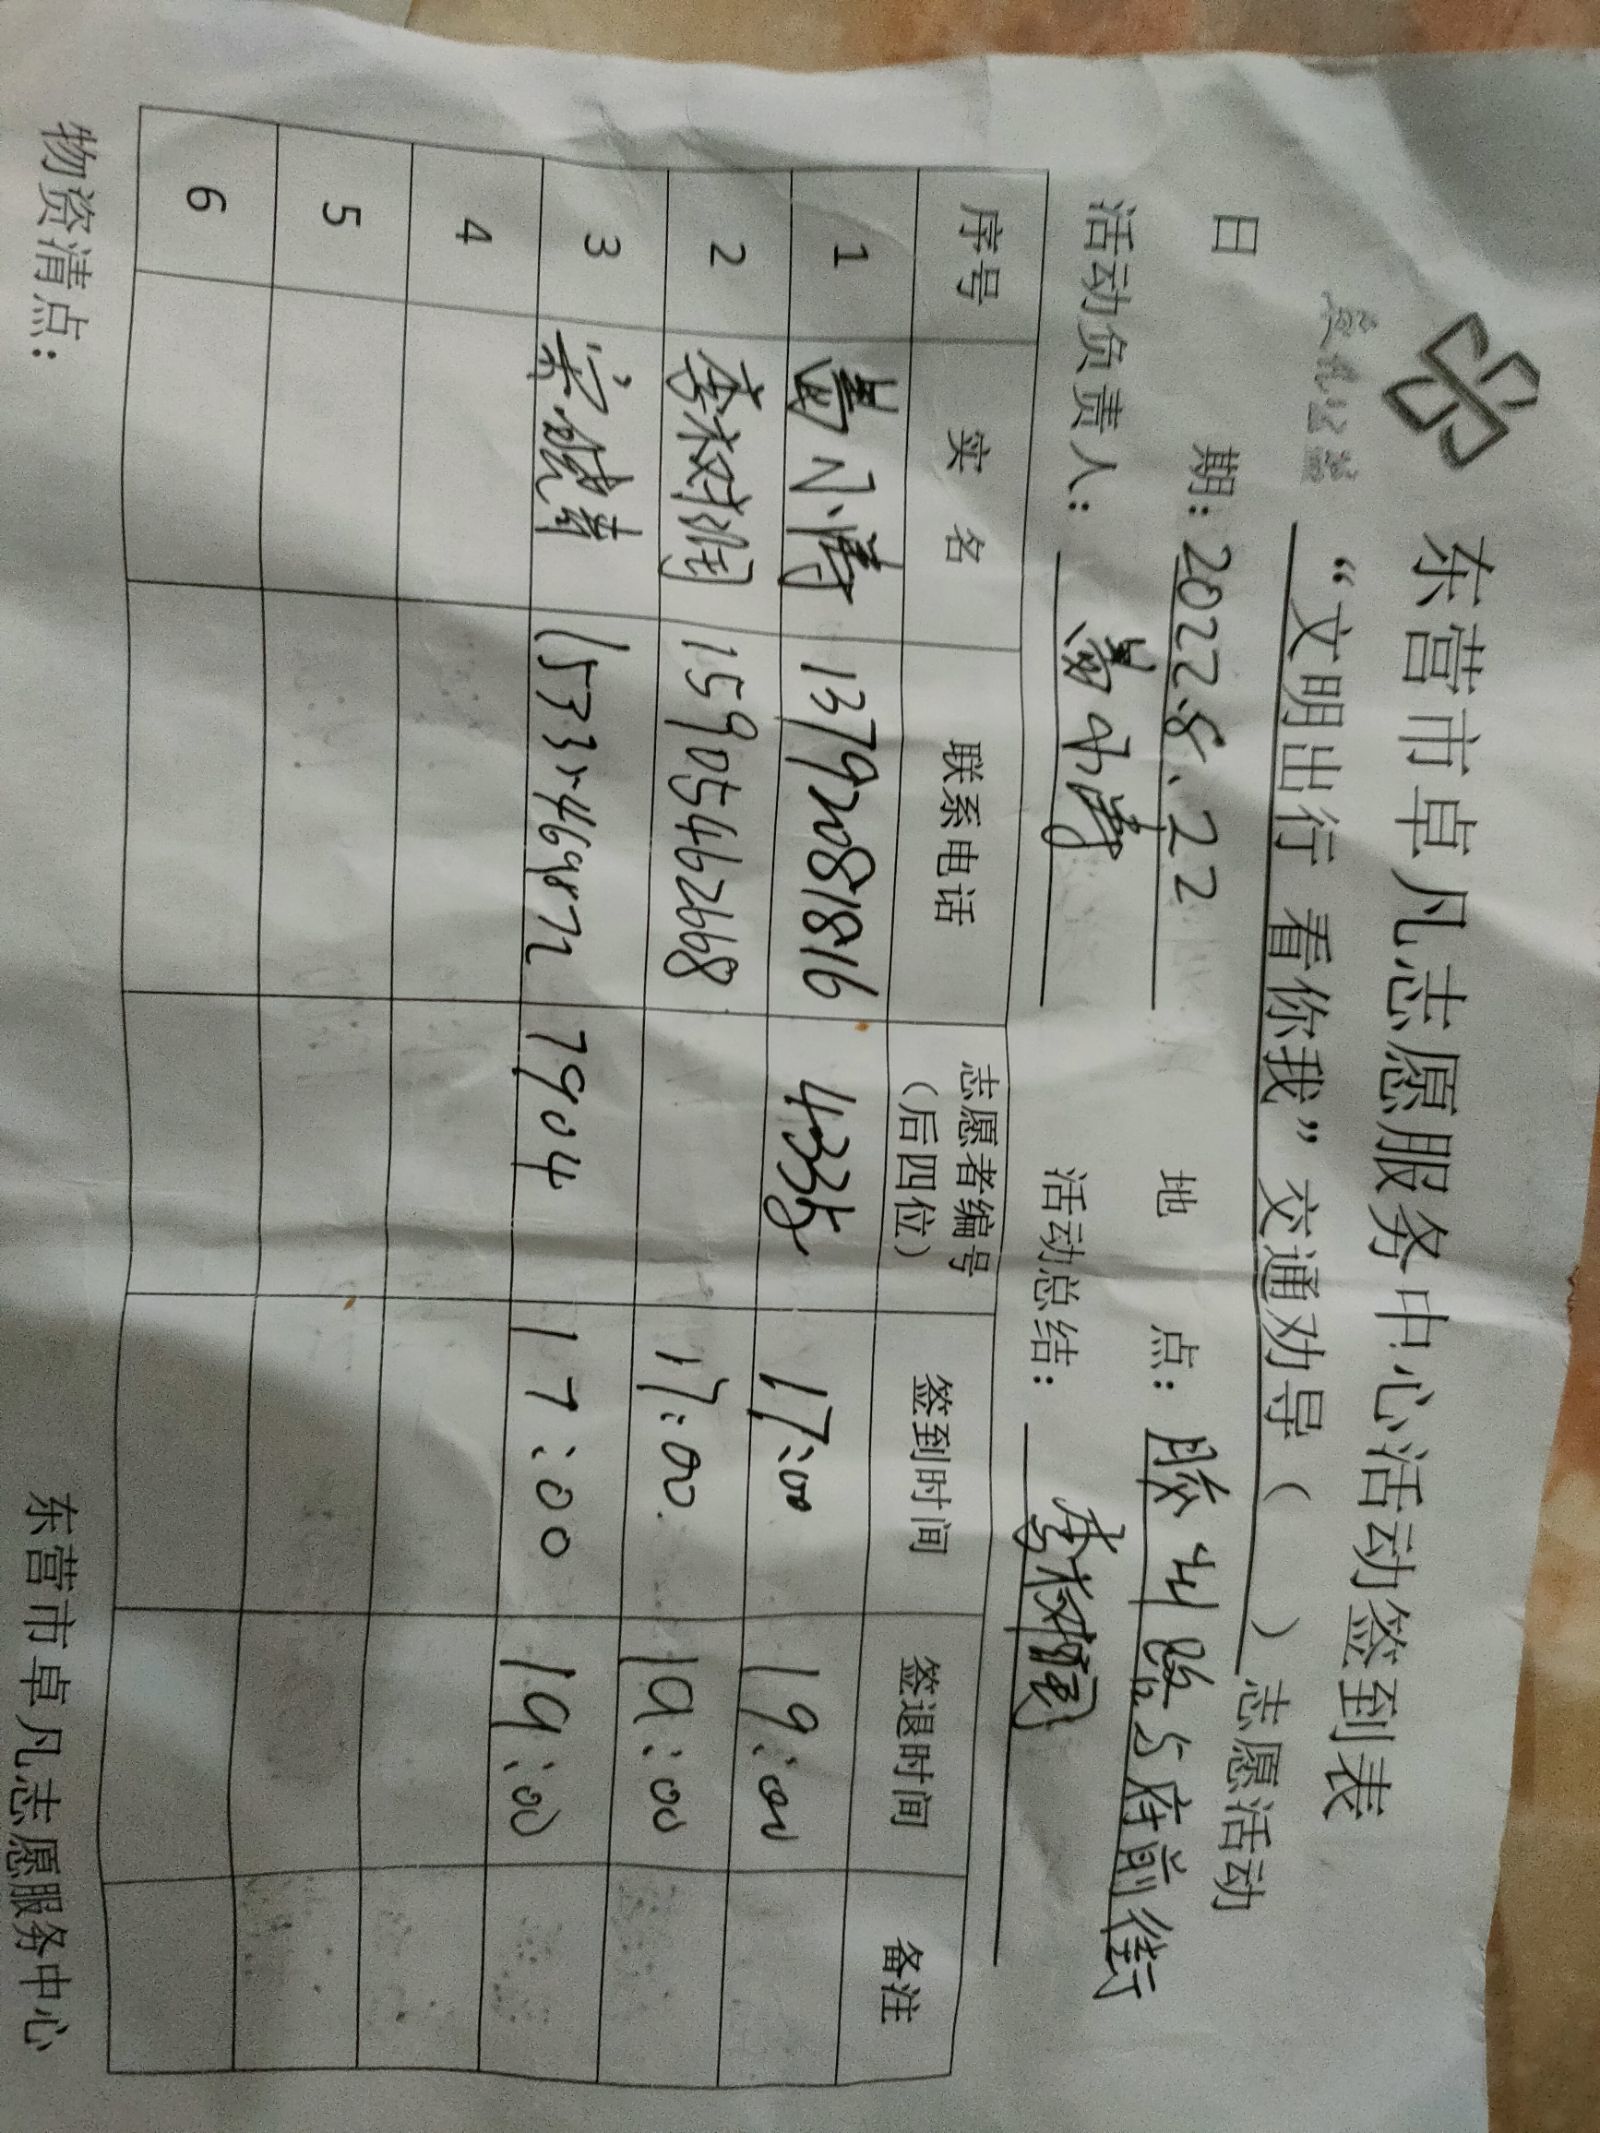 东营市卓凡志愿服务中心活动签到表
“文明出行 看你我”交通劝导（ ）志愿活动
日 期：2022.8.22 地 点：胶州路与府前街
活动负责人： 小涛 活动总结：李树润
序号 实 名 联系电话 志愿者编号（后四位） 签到时间 签退时间 备注
1 小涛 13792081816 4335 17:00 19:00
2 李树润 15905462668 17:00 19:00
3 7904 17:00 19:00
4
5
6
物资清点： 东营市卓凡志愿服务中心